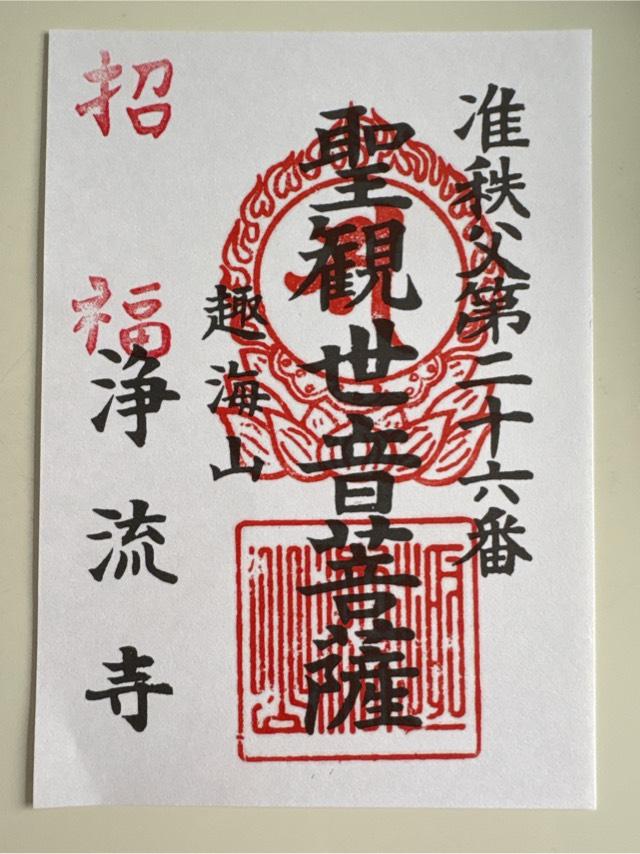 准秩父第二十六番
聖観世音菩薩
趣海山
招福
浄流寺